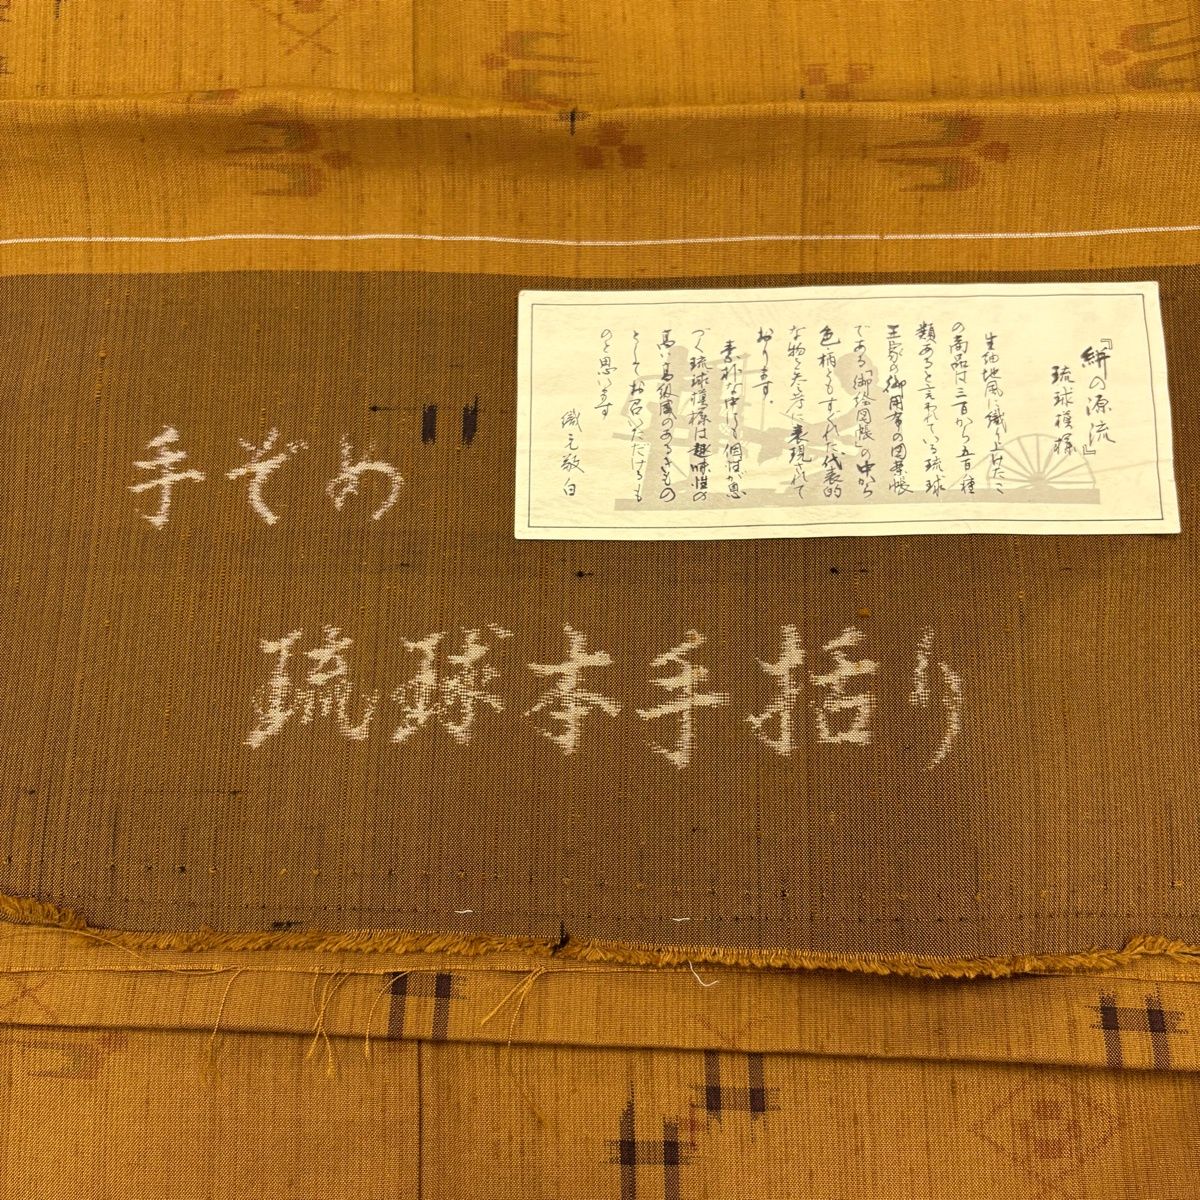 『絣の源流』
琉球模様
生紬地風に織上げたこ
の商品は三百から五百種
類あると云われている琉球
王家の御用布の図案帳
である「御絵図帳」の中から
色・柄ともすぐれた代表的
な物を参考に表現されて
おります。
素朴な中にも個性が息
づく琉球模様は趣味性の
高い高級感のあるきもの
としてお召いただけるも
のと思います
織元敬白
手ぞめ
琉球本手括り